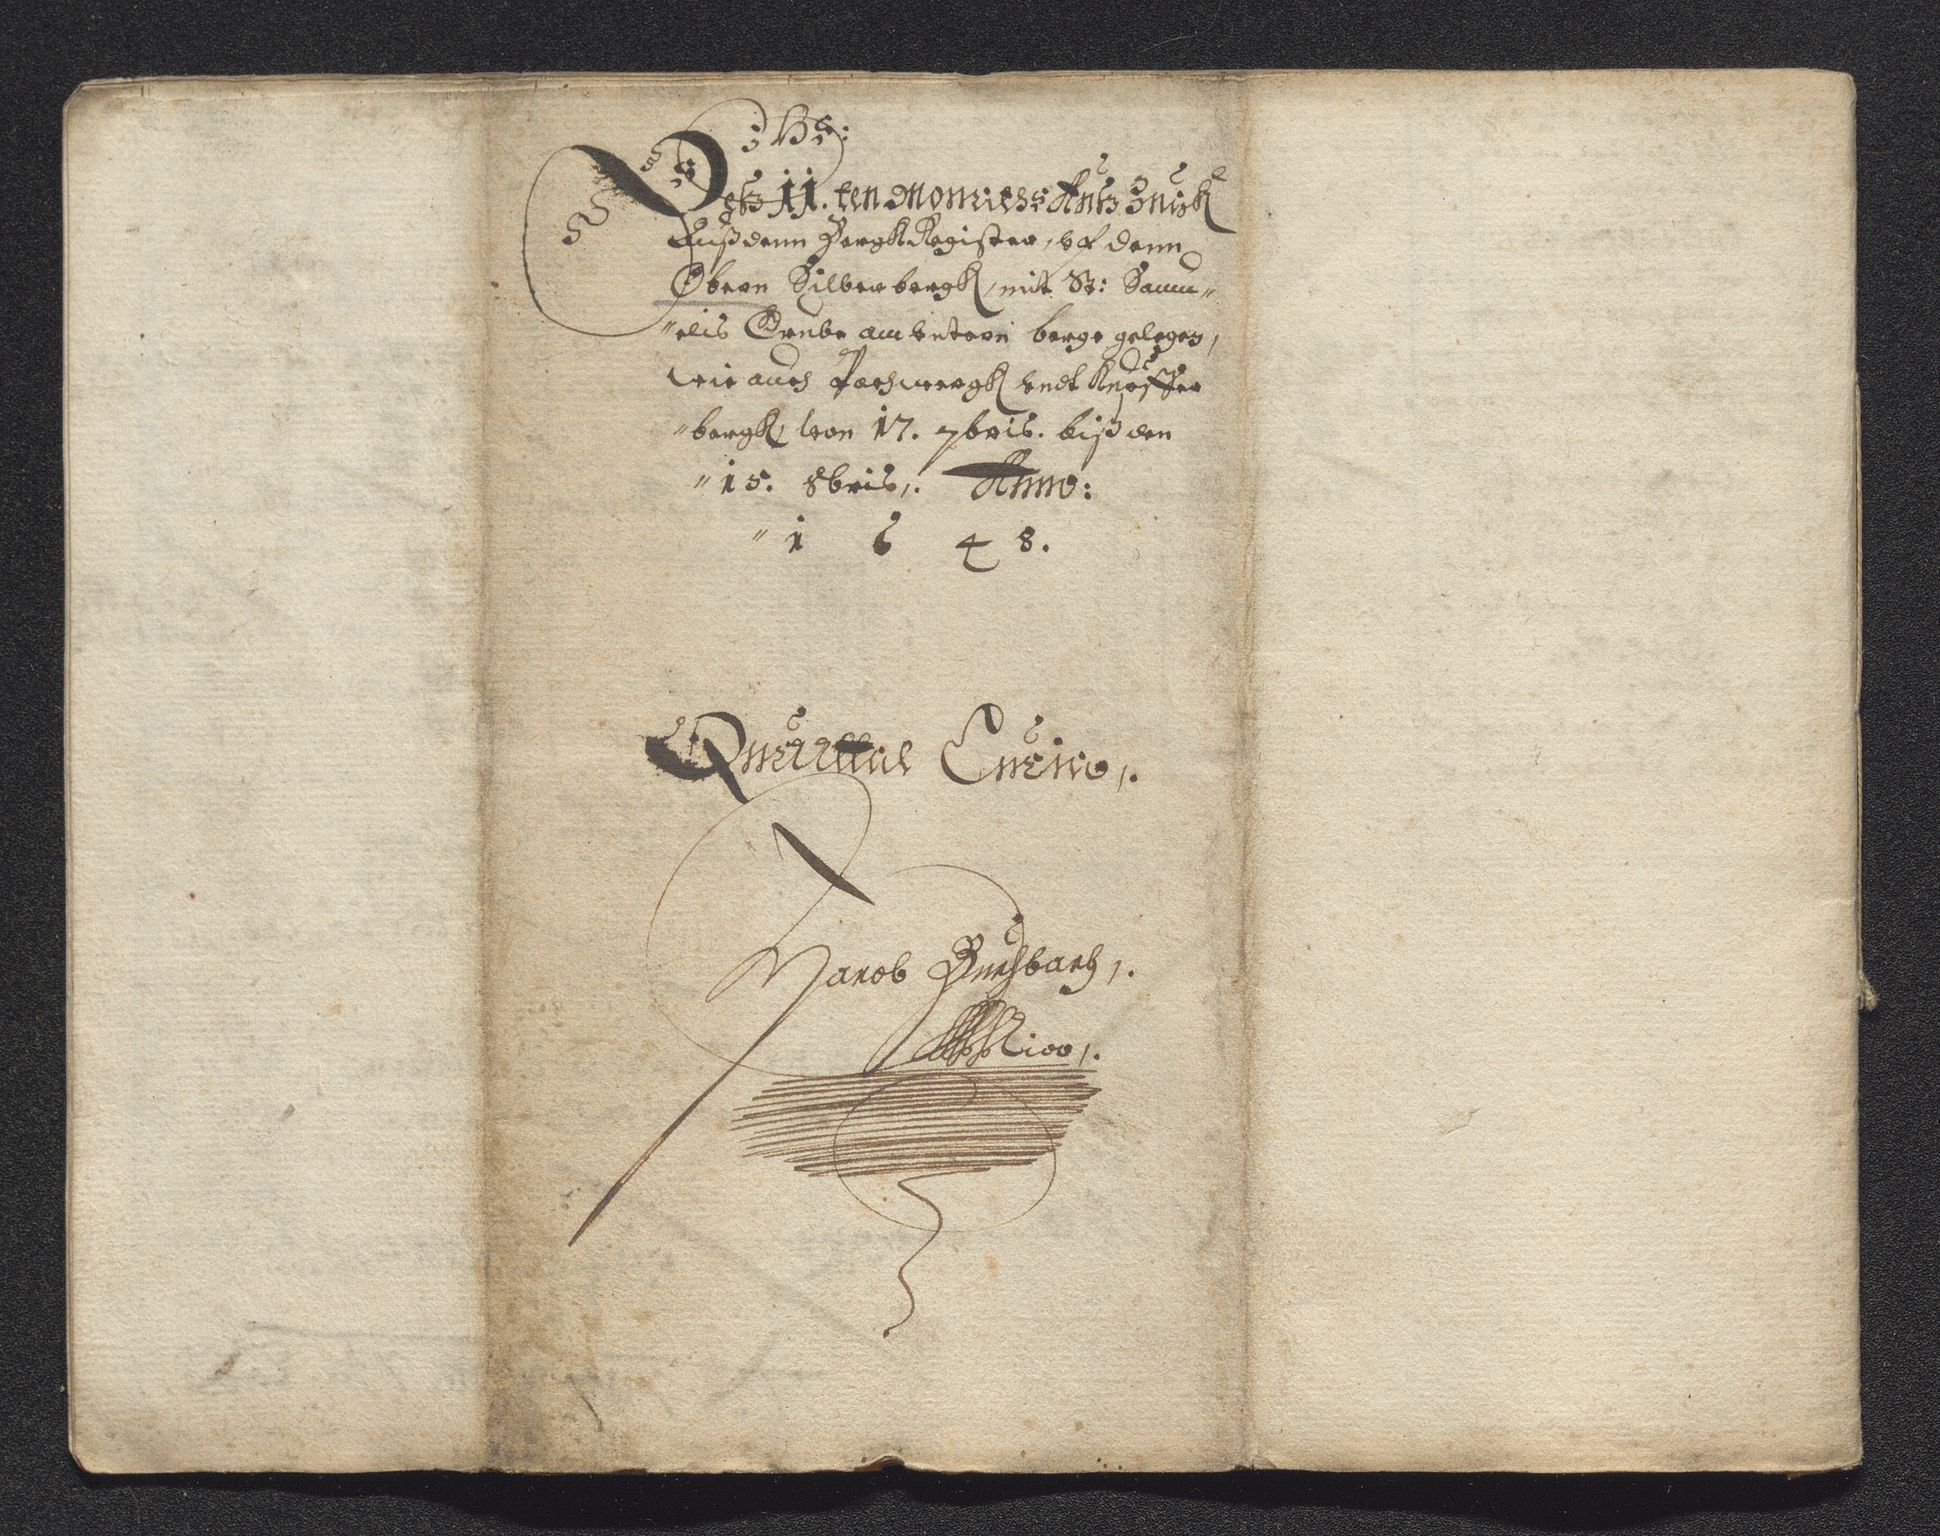 Deß 11. ten Monats Außzugk
Auß denn BergkRegister, vf denn
Obern Silberbergk, mit St: Samu=
"elis Grube am vntern berge gelegen,
wie auch Pochwergk vndt Kupffer
"bergk, von 17. 7bris. biß den
"15. 8bris,. Anno:
"1 6 4 8.
Quarttal Crucis,.
Jacob Buchbach,.